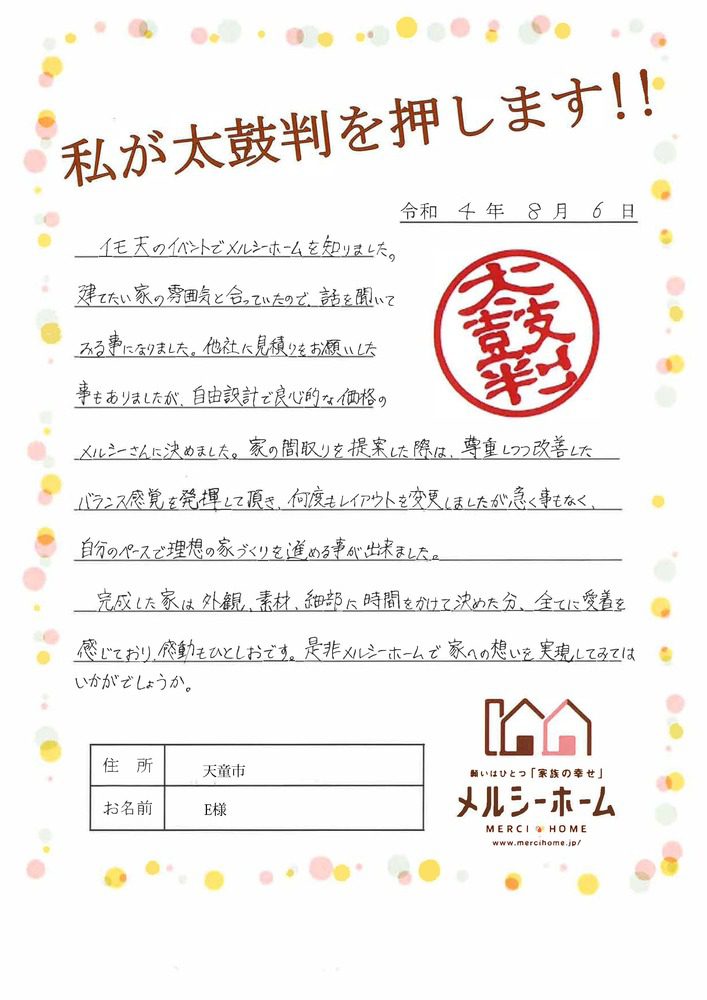 私が太鼓判を押します!!
令和 4 年 8 月 6 日
イモ天のイベントでメルシーホームを知りました。
建てたい家の雰囲気と合っていたので、話を聞いて
みる事になりました。他社に見積りをお願いした
事もありましたが、自由設計で良心的な価格の
太鼓判
メルシーさんに決めました。家の間取りを提案した際は、尊重しつつ改善した
バランス感覚を発揮して頂き、何度もレイアウトを変更しましたが急ぐ事もなく、
自分のペースで理想の家づくりを進める事が出来ました。
完成した家は外観、素材、細部に時間をかけて決めた分、全てに愛着を
感じており、感動もひとしおです。是非メルシーホームで家への想いを実現してみては
いかがでしょうか。
住 所 天童市
お名前 E様
願いはひとつ「家族の幸せ」
メルシーホーム
MERCI HOME
www.mercihome.jp/